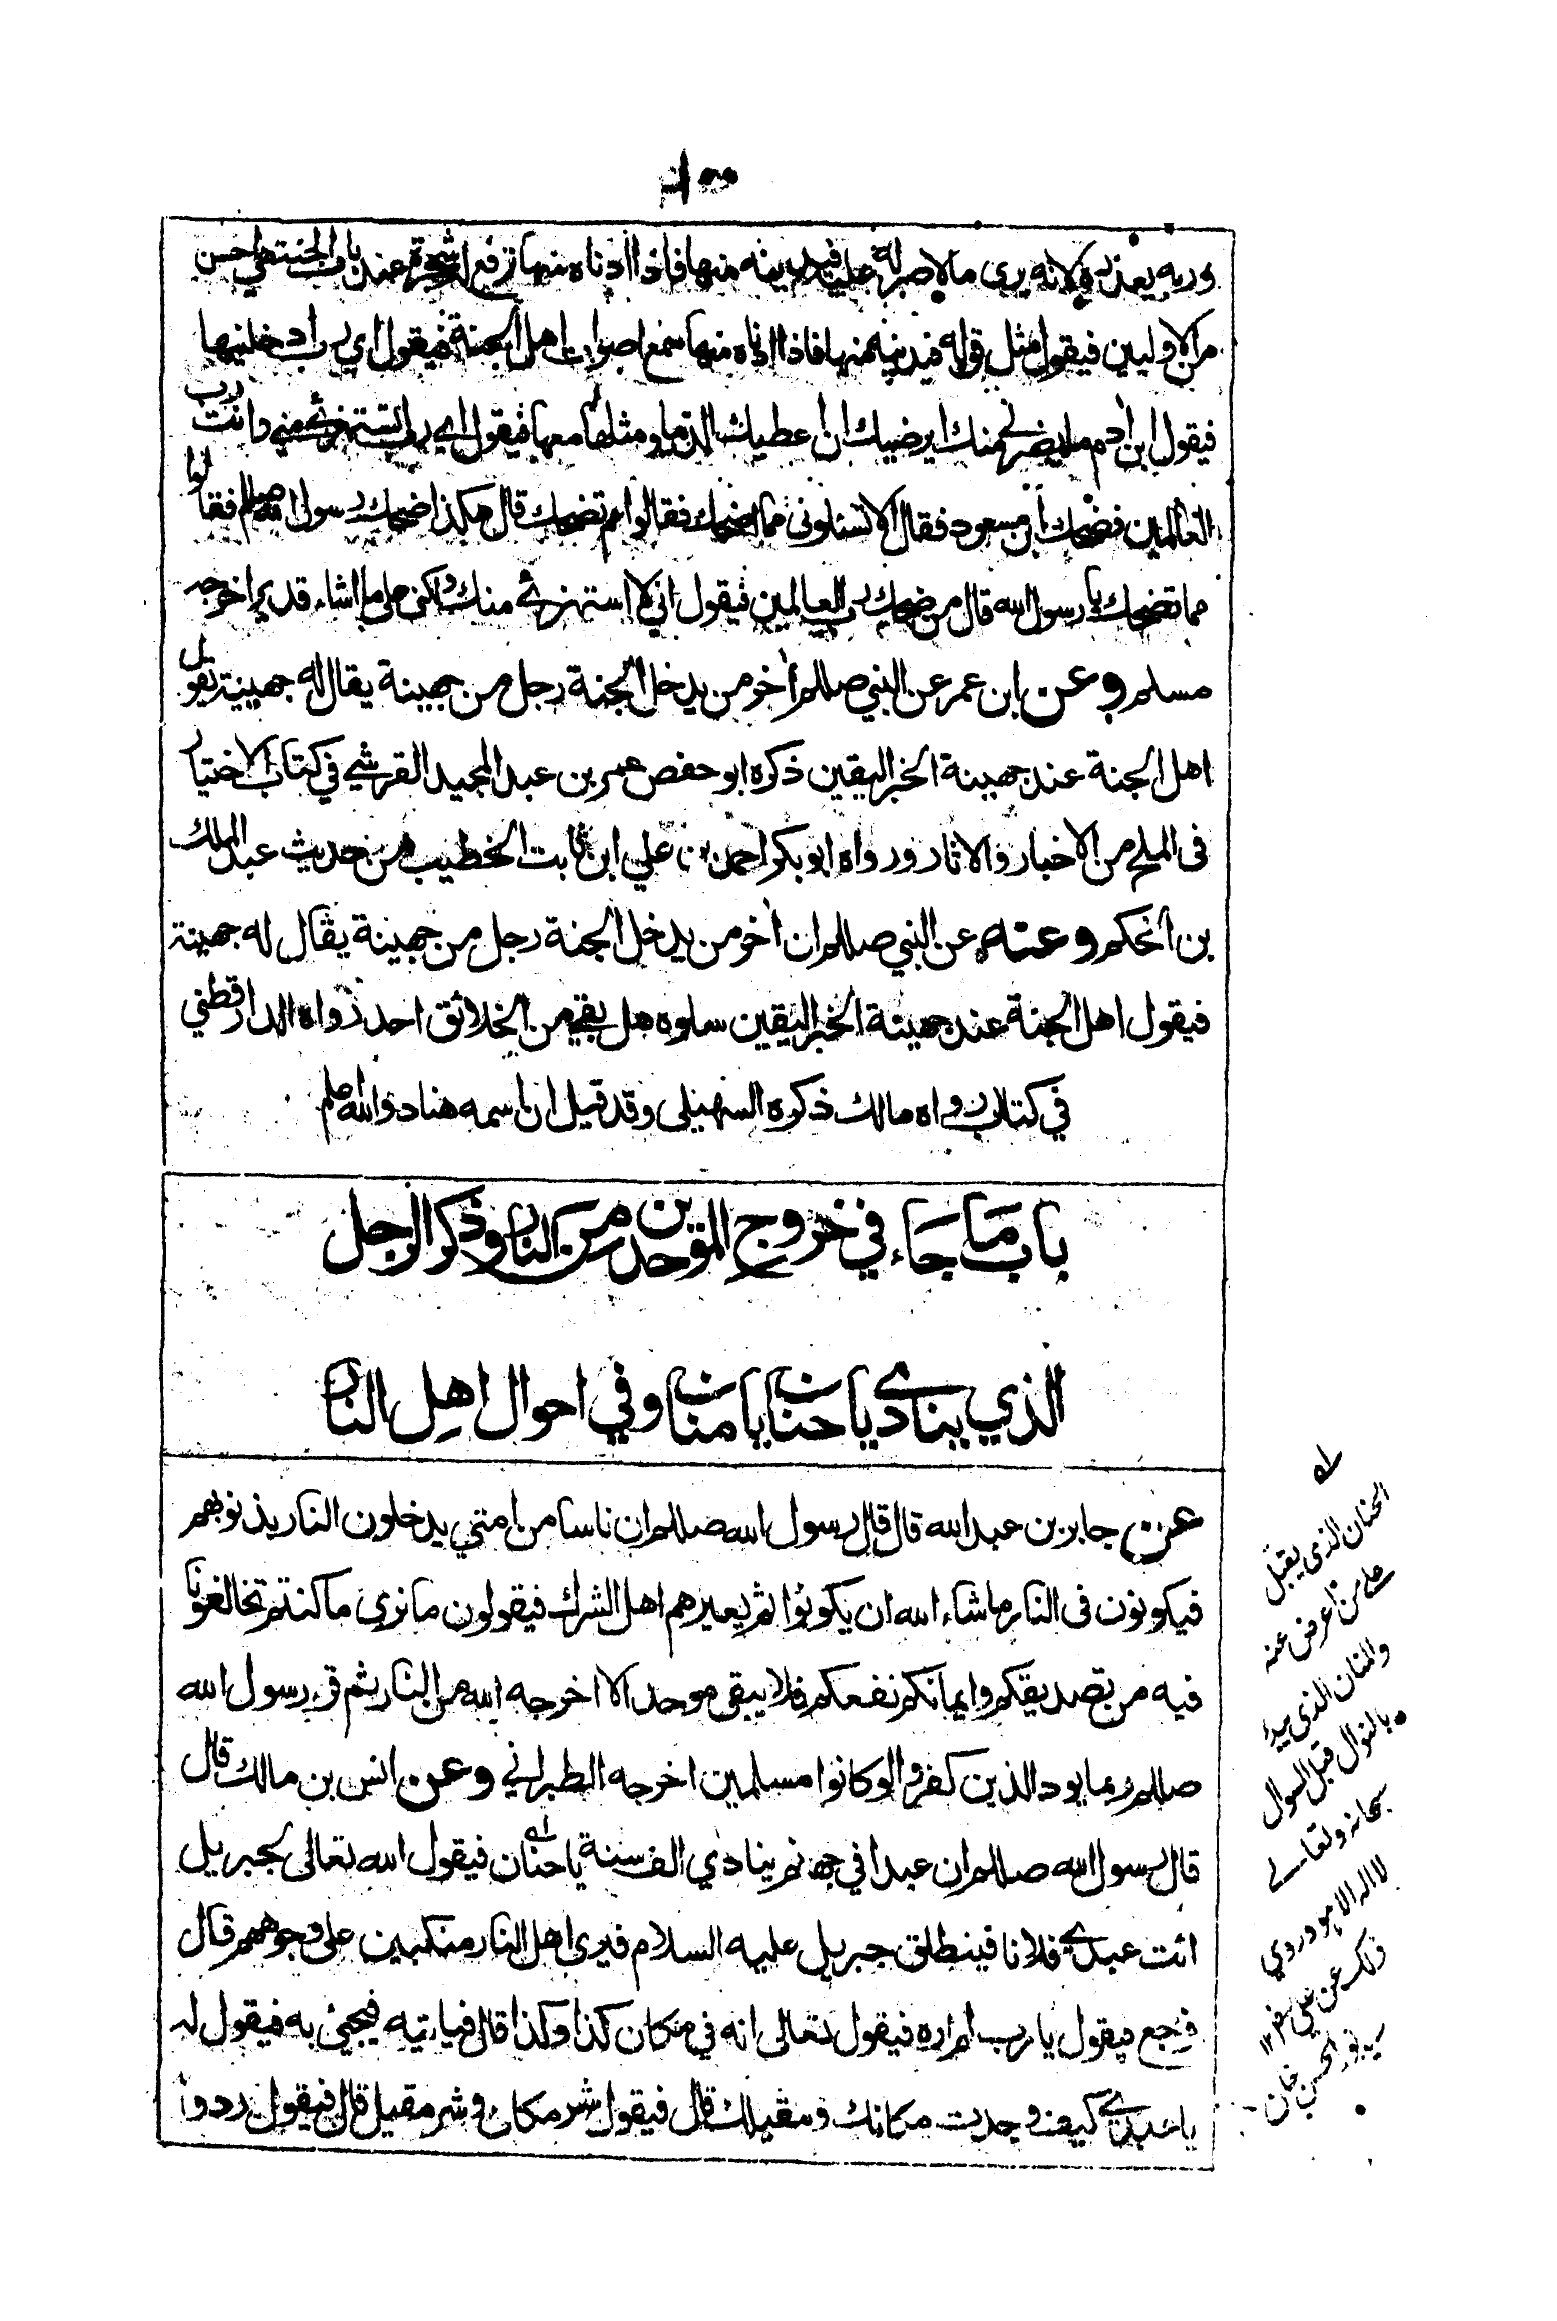 وربه يعذره لانه يرى ما لا صبر له عليه فيدنيه منها فاذا ادناه منها ترفع له شجرة عند باب الجنة هي احسن
من الاوليين فيقول مثل قوله فيدنيه منها فاذا ادناه منها سمع اصوات اهل الجنة فيقول اي رب ادخلنيها
فيقول ابن ادم ما يضرني منك ايرضيك ان اعطيك الدنيا ومثلها معها فيقول اي رب اتستهزئ مني وانت رب
العالمين فضحك ابن مسعود فقال الا تسئلوني مما اضحك فقالوا مم تضحك قال هكذا ضحك رسول الله صللم فقالوا
مما تضحك يا رسول الله قال من ضحك رب العالمين فيقول اني لا استهزئ منك ولكني على ما اشاء قدير اخرجه
مسلم وعن ابن عمر عن النبي صللم أخر من يدخل الجنة رجل من جهينة يقال له جهينة يقول
اهل الجنة عند جهينة الخبر اليقين ذكره ابو حفص عمر بن عبد المجيد القرشي في كتاب الاختيار
فى الملح من الاخبار والاثار ورواه ابو بكر احمد بن علي ابن ثابت الخطيب من حديث عبد الملك
بن الحكم وعنه عن النبي صللم ان أخر من يدخل الجنة رجل من جهينة يقال له جهينة
فيقول اهل الجنة عند جهينة الخبر اليقين سلوه هل بقي من الخلائق احد رواه الدارقطني
في كتاب رواه مالك ذكره السهيلى وقد قيل ان اسمه هناد والله اعلم
باب ما جاء في خروج الموحدين من النار وذكر الرجل
الذي ينادي يا حنان يا منان وفي احوال اهل النار
عن جابر بن عبد الله قال قال رسول الله صللم ان ناسا من امتي يدخلون النار بذنوبهم
فيكونون فى النار ما شاء الله ان يكونوا ثم يعيرهم اهل الشرك فيقولون ما نرى ما كنتم تخالفونا
فيه من تصديقكم وايمانكم نفعكم فلا يبقى موحد الا اخرجه الله من النار ثم قرء رسول الله
صللم ربما يود الذين كفروا لو كانوا مسلمين اخرجه الطبراني وعن انس بن مالك قال
قال رسول الله صللم ان عبدا في جهنم ينادي الف سنة يا حنان فيقول الله تعالى لجبريل
ائت عبدي فلانا فينطلق جبريل عليه السلام فيرى اهل النار منكبين على وجوههم قال
فرجع فيقول يا رب لم اره فيقول تعالى انه في مكان كذا وكذا قال فياتيه فيجئ به فيقول له
يا عبدي كيف وجدت مكانك ومقيلك قال فيقول شر مكان وشر مقيل قال فيقول ردوا
الحنان الذى يقبل
على من اعرض عنه
والمنان الذى يبدأ
بالنوال قبل السوال
سبحانه وتعالى
لا اله الا هو وروي
ذلك عن علي
سيد نور الحسن خان